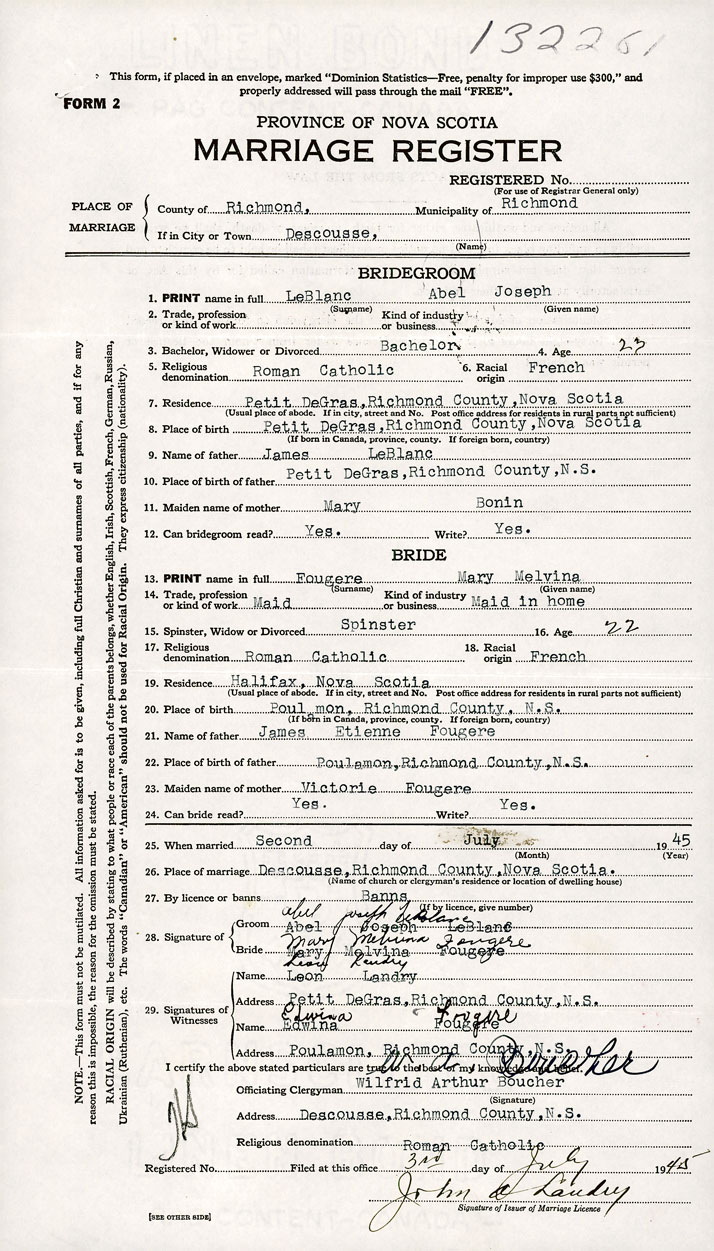 132261
This form, if placed in an envelope, marked “Dominion Statistics—Free, penalty for improper use $300,” and
properly addressed will pass through the mail “FREE”.
FORM 2
PROVINCE OF NOVA SCOTIA
MARRIAGE REGISTER
REGISTERED No.
(For use of Registrar General only)
PLACE OF MARRIAGE
County of Richmond, Municipality of Richmond
If in City or Town Descousse,
(Name)
BRIDEGROOM
1. PRINT name in full LeBlanc Abel Joseph
(Surname) (Given name)
2. Trade, profession or kind of work Kind of industry or business
3. Bachelor, Widower or Divorced Bachelor 4. Age 23
5. Religious denomination Roman Catholic 6. Racial origin French
7. Residence Petit DeGras, Richmond County, Nova Scotia
(Usual place of abode. If in city, street and No. Post office address for residents in rural parts not sufficient)
8. Place of birth Petit DeGras, Richmond County, Nova Scotia
(If born in Canada, province, county. If foreign born, country)
9. Name of father James LeBlanc
10. Place of birth of father Petit DeGras, Richmond County, N.S.
11. Maiden name of mother Mary Bonin
12. Can bridegroom read? Yes. Write? Yes.
BRIDE
13. PRINT name in full Fougere Mary Melvina
(Surname) (Given name)
14. Trade, profession or kind of work Maid Kind of industry or business Maid in home
15. Spinster, Widow or Divorced Spinster 16. Age 22
17. Religious denomination Roman Catholic 18. Racial origin French
19. Residence Halifax, Nova Scotia
(Usual place of abode. If in city, street and No. Post office address for residents in rural parts not sufficient)
20. Place of birth Poul mon, Richmond County, N.S.
(If born in Canada, province, county. If foreign born, country)
21. Name of father James Etienne Fougere
22. Place of birth of father Poulamon, Richmond County, N.S.
23. Maiden name of mother Victorie Fougere
24. Can bride read? Yes. Write? Yes.
25. When married Second day of July 1945
(Month) (Year)
26. Place of marriage Descousse, Richmond County, Nova Scotia.
(Name of church or clergyman's residence or location of dwelling house)
27. By licence or banns Banns
(If by licence, give number)
abel joseph LeBlanc
28. Signature of Groom Abel Joseph LeBlanc
Mary Melvina Fougere
Bride Mary Melvina Fougere
Leon Landry
29. Signatures of Witnesses
Name Leon Landry
Address Petit DeGras, Richmond County, N.S.
Edwina Fougere
Name Edwina Fougere
Address Poulamon, Richmond County, N.S.
I certify the above stated particulars are true to the best of my knowledge and belief.
Boucher
Officiating Clergyman Wilfrid Arthur Boucher
(Signature)
Address Descousse, Richmond County, N.S.
Religious denomination Roman Catholic
Registered No. Filed at this office 3rd day of July 1945
John a Landry
Signature of Issuer of Marriage Licence
[SEE OTHER SIDE]
NOTE.—This form must not be mutilated. All information asked for is to be given, including full Christian and surnames of all parties, and if for any
reason this is impossible, the reason for the omission must be stated.
RACIAL ORIGIN will be described by stating to what people or race each of the parents belongs, whether English, Irish, Scottish, French, German, Russian,
Ukrainian (Ruthenian), etc. The words “Canadian” or “American” should not be used for Racial Origin. They express citizenship (nationality).